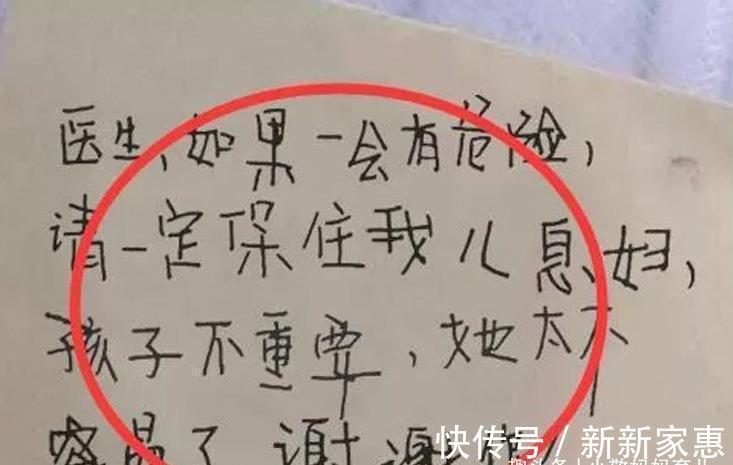 医生,如果一会有危险,
请一定保住我儿息妇,
孩子不重要,她太不
容易了,谢谢
快传号 / 新新家惠